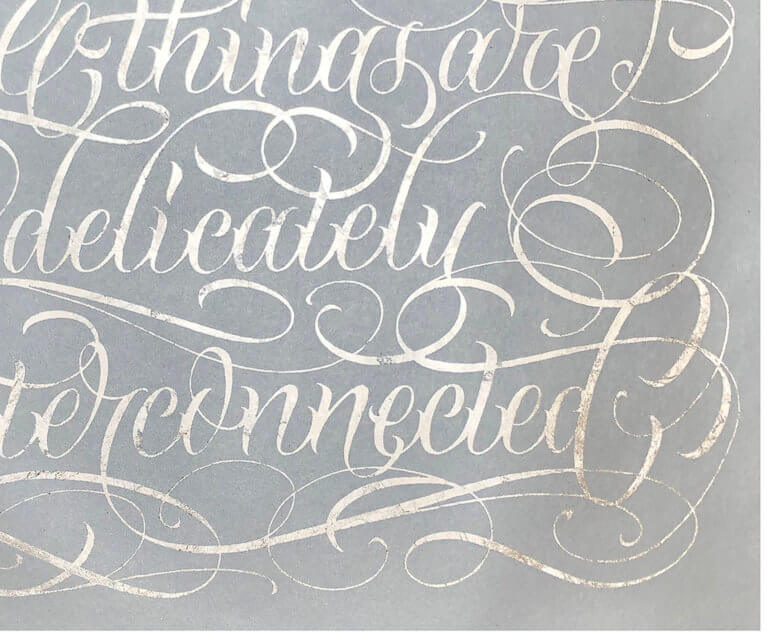 ll things are
delicately
terconnected